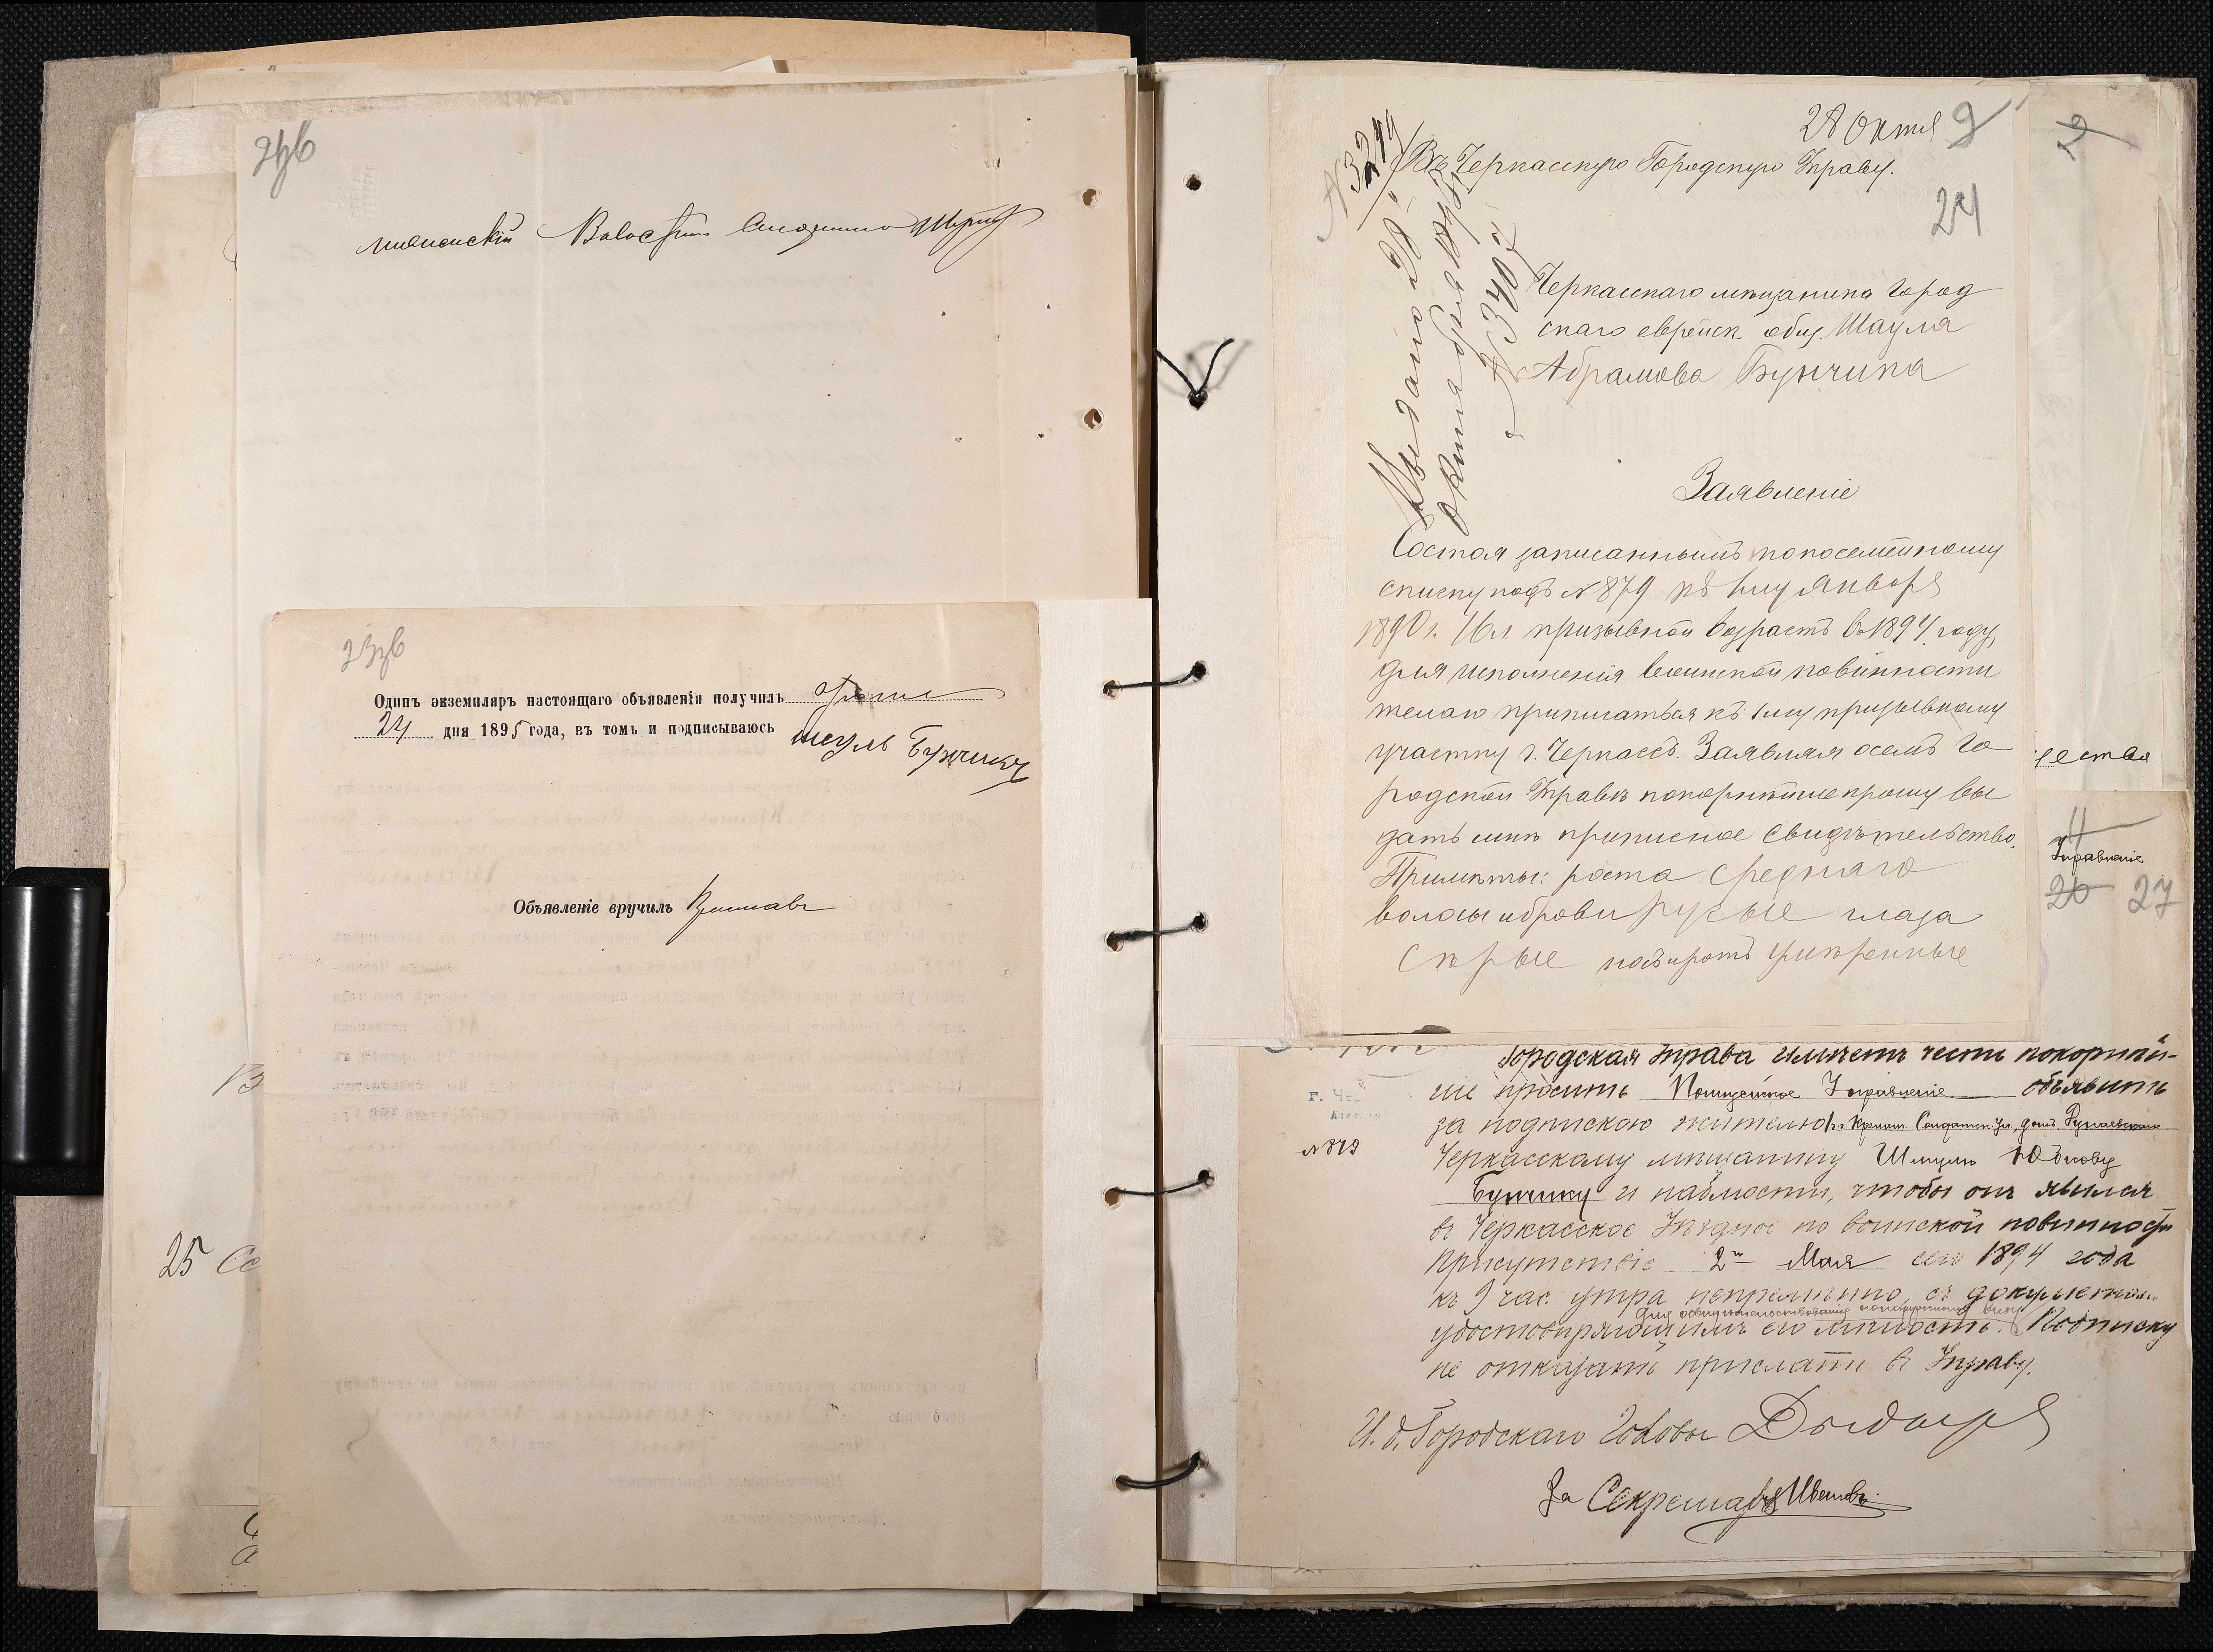 23б
Одинъ экземпляръ настоящаго объявленія получилъ
24 дня 1895 года, въ томъ и подписываюсь
Шеуль Бунчикъ
Объявленіе вручилъ
25
28 Октя 9
№ 3249
Въ Черкасскую Городскую Управу.
24
Выдано 28
октября
№ 3407
Черкасскаго мѣщанина город
скаго еврейск общ. Шаула
Абрамова Бунчика
Заявленіе
Состоя записаннымъ по посемейному
списку подъ № 879 къ 1му Января
1890 г. призывной возрастъ въ 1894 году,
для исполненія воинской повинности
желаю приписаться къ 1му призывному
участку г. Черкассъ. Заявляя о семъ Го
родской Управѣ покорнѣйше прошу вы
дать мнѣ приписное свидѣтельство.
Примѣты: роста средняго
волосы и брови русые глаза
сѣрые носъ и ротъ умѣренные
11
Управленіе
26 27
Городская Управа имѣетъ честь покорнѣй-
ше просить Полицейское Управленіе объявить
за подпискою жителю г. Кремен. Солдатск. ул., домъ
№ 879
Черкасскому мѣщанину Шмулю
Бунчику и наблюсти, чтобы онъ явился
въ Черкасское Уѣздное по воинской повинности
Присутствіе 2го Мая сего 1894 года
къ 9 час. утра непремѣнно, съ документами
для освидѣтельствованія по наружному виду
удостовѣряющими его личность. Подписку
не отказать прислать въ Управу.
И. д. Городскаго Головы
За Секретаря Ивановъ